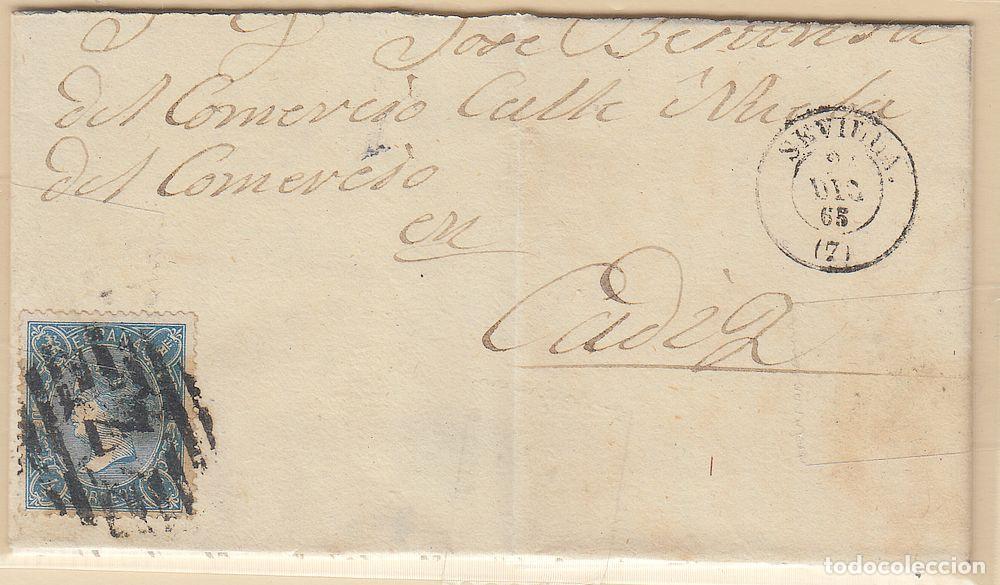 José
del Comercio Calle Nueba
del Comercio
en
Cádiz
SEVILLA.
DIC
65
(7)
ESPAÑA
CORREOS
todocoleccion